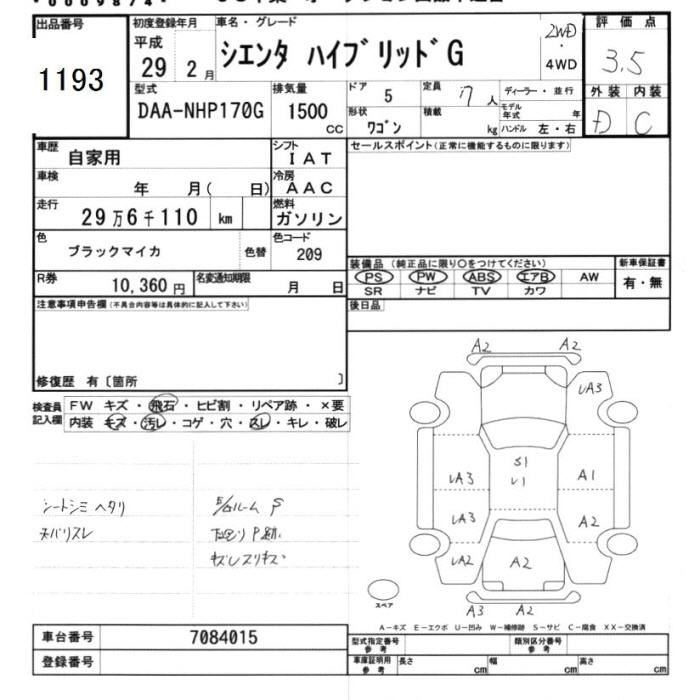 出品番号 初度登録年月 車名・グレード 評価点
1193 平成 29年 2月 シエンタ ハイブリッドG 2WD・4WD 3.5
型式 排気量 ドア 定員 ディーラー・並行 外装 内装
DAA-NHP170G 1500cc 5 7人 モデル年式 年 D C
形状 積載 ハンドル 左・右
ワゴン kg
車歴 自家用 シフト IAT セールスポイント(正常に機能するものに限ります)
車検 年 月( 日) 冷房 AAC
走行 29万6千110 km 燃料 ガソリン
色 ブラックマイカ 色替 色コード 209
装備品(純正品に限り○をつけてください) 新車保証書
PS PW ABS エアB AW 有・無
SR ナビ TV カワ
R券 10,360円 名変通知期限 月 日
後日品
注意事項申告欄(不具合内容等は具体的に記入して下さい)
修復歴 有〔箇所 〕
検査員記入欄 FW キズ・飛石・ヒビ割・リペア跡・×要
内装 キズ・汚レ・コゲ・穴・スレ・キレ・破レ
シートシミ ヘタリ
ネバリスレ
A2 A2
UA3
S1
U1
UA3 A1
UA3 A2
UA2 A2
A3 A2
スペア
A-キズ E-エクボ U-凹み W-補修跡 S-サビ C-腐食 XX-交換済
車台番号 7084015
登録番号
型式指定番号 参考 類別区分番号 参考
車庫証明用 参考 長さ cm 幅 cm 高さ cm